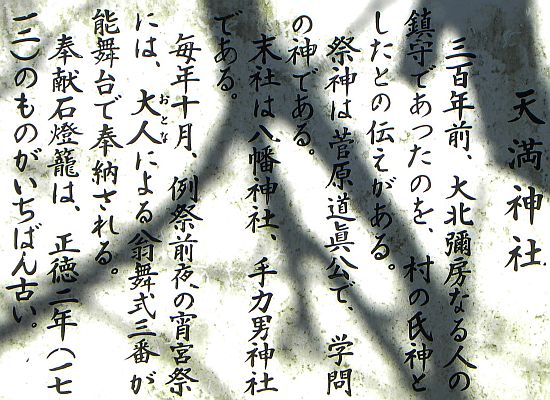 天満神社
三百年前、大北彌房なる人の
鎮守であつたのを、村の氏神と
したとの伝えがある。
祭神は菅原道眞公で、学問
の神である。
末社は八幡神社、手力男神社
である。
毎年十月、例祭前夜の宵宮祭
には、大人による翁舞式三番が
おとな
能舞台で奉納される。
奉献石燈籠は、正徳二年（一七
一二）のものがいちばん古い。